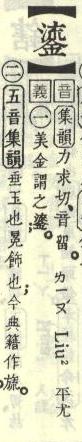 【鎏】
音 集韻力求切,音留。ㄌㄧㄡ Liu² 平尤
義 ㊀美金謂之鎏。
㊁五音集韻垂玉也冕飾也今典籍作旒。